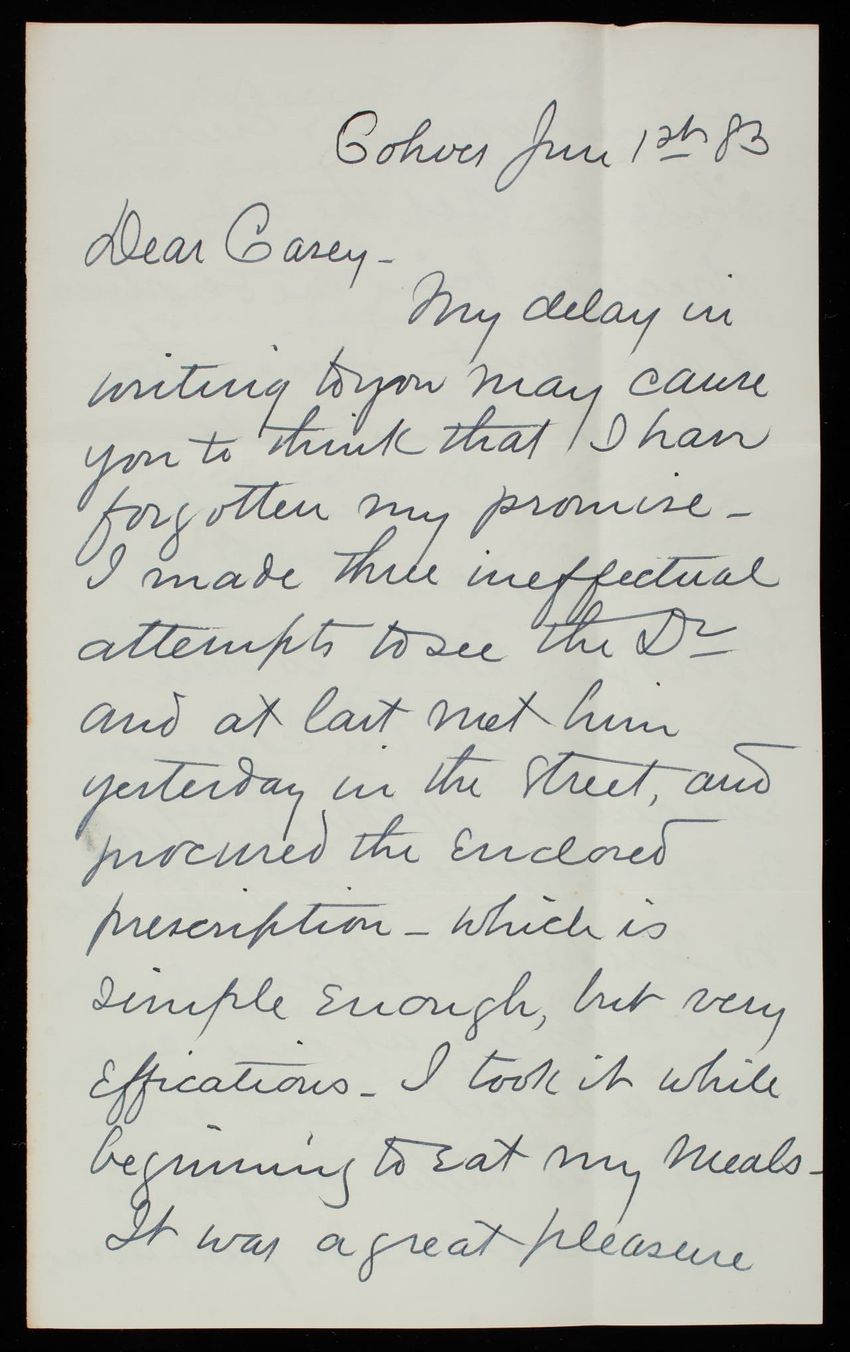 Cohoes June 1st 83
Dear Casey -
My delay in
writing to you may cause
you to think that I have
forgotten my promise -
I made three ineffectual
attempts to see the Dr
and at last met him
yesterday in the Street, and
procured the Enclosed
prescription - which is
simple Enough, but very
Efficatious - I took it while
beginning to Eat my meals -
It was a great pleasure